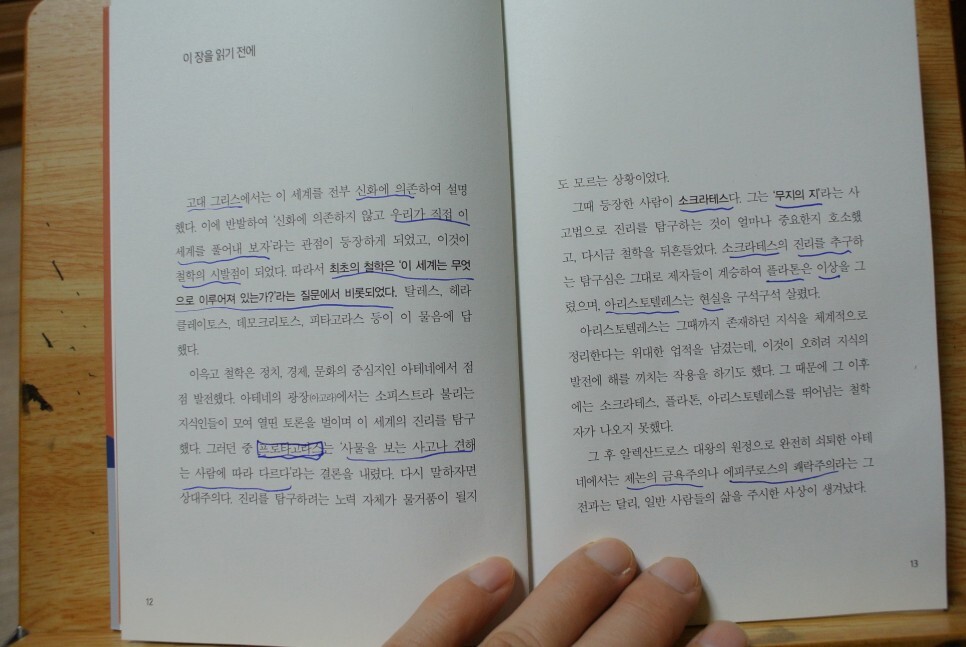 이 장을 읽기 전에
고대 그리스에서는 이 세계를 전부 신화에 의존하여 설명
했다. 이에 반발하여 '신화에 의존하지 않고 우리가 직접 이
세계를 풀어내 보자'라는 관점이 등장하게 되었고, 이것이
철학의 시발점이 되었다. 따라서 최초의 철학은 '이 세계는 무엇
으로 이루어져 있는가?'라는 질문에서 비롯되었다. 탈레스, 헤라
클레이토스, 데모크리토스, 피타고라스 등이 이 물음에 답
했다.
이윽고 철학은 정치, 경제, 문화의 중심지인 아테네에서 점
점 발전했다. 아테네의 광장(아고라)에서는 소피스트라 불리는
지식인들이 모여 열띤 토론을 벌이며 이 세계의 진리를 탐구
했다. 그러던 중 프로타고라스는 '사물을 보는 사고나 견해
는 사람에 따라 다르다'라는 결론을 내렸다. 다시 말하자면
상대주의다. 진리를 탐구하려는 노력 자체가 물거품이 될지
12
도 모르는 상황이었다.
그때 등장한 사람이 소크라테스다. 그는 '무지의 지'라는 사
고법으로 진리를 탐구하는 것이 얼마나 중요한지 호소했
고, 다시금 철학을 뒤흔들었다. 소크라테스의 진리를 추구하
는 탐구심은 그대로 제자들이 계승하여 플라톤은 이상을 그
렸으며, 아리스토텔레스는 현실을 구석구석 살폈다.
아리스토텔레스는 그때까지 존재하던 지식을 체계적으로
정리한다는 위대한 업적을 남겼는데, 이것이 오히려 지식의
발전에 해를 끼치는 작용을 하기도 했다. 그 때문에 그 이후
에는 소크라테스, 플라톤, 아리스토텔레스를 뛰어넘는 철학
자가 나오지 못했다.
그 후 알렉산드로스 대왕의 원정으로 완전히 쇠퇴한 아테
네에서는 제논의 금욕주의나 에피쿠로스의 쾌락주의라는 그
전과는 달리, 일반 사람들의 삶을 주시한 사상이 생겨났다.
13